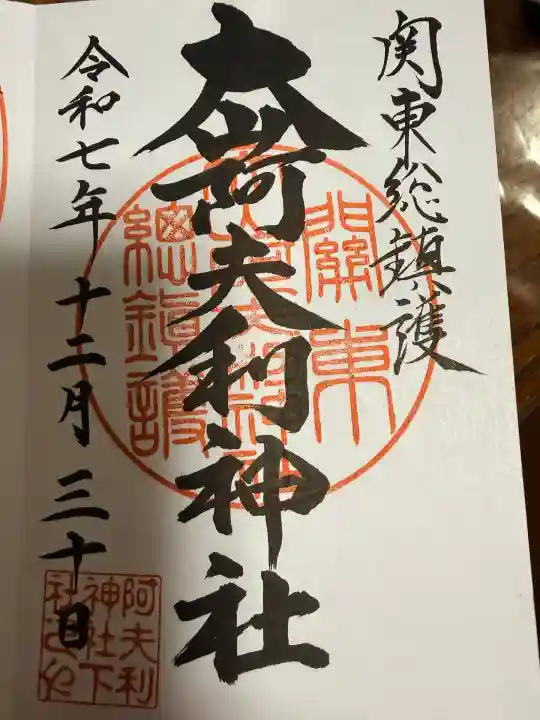 関東総鎮護
大山阿夫利神社
令和七年十二月三十日
關東
總鎮護
阿夫利
神社下
社之印